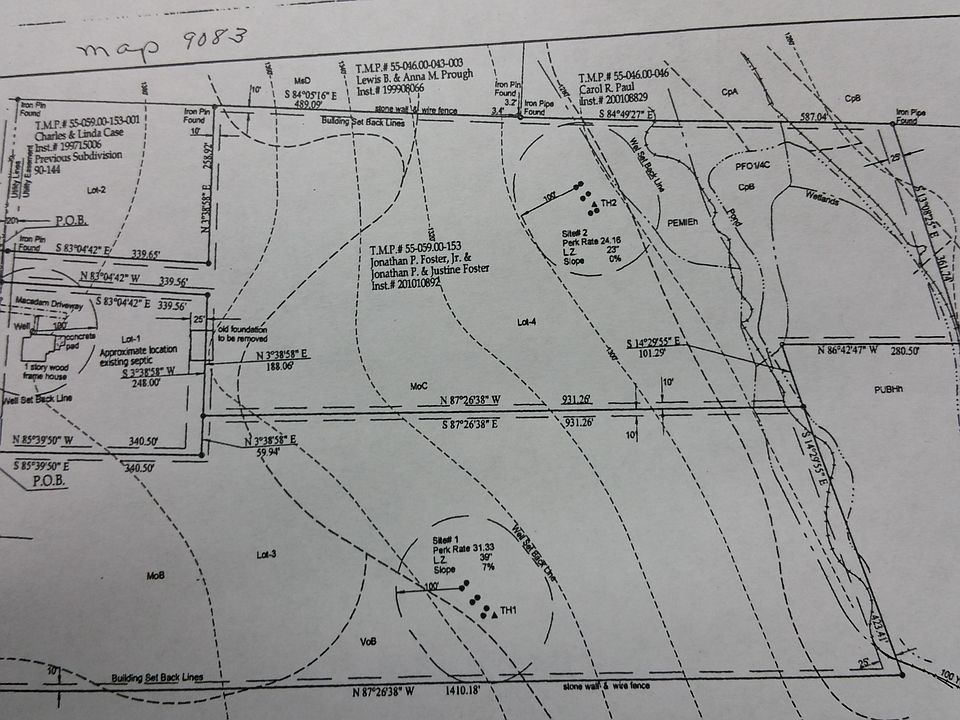 map 9083
1280
1360
1340
1320
1290
1280
MsD
S 84°05'16" E
489.09'
10'
T.M.P.# 55-046.00-043-003
Lewis B. & Anna M. Prough
Inst.# 199908066
stone wall & wire fence
Building Set Back Lines
Iron Pin
Found
3.2'
3.4'
Iron Pipe
Found
T.M.P.# 55-046.00-046
Carol R. Paul
Inst.# 200108829
S 84°49'27" E
587.04'
CpA
CpB
Iron Pipe
Found
25'
S 13°08'25" E
361.74'
Iron Pin
Found
Iron Pin
Found
10'
T.M.P.# 55-059.00-153-001
Charles & Linda Case
Inst.# 199715006
Previous Subdivision
90-144
Utility Lines
Utility Easement
Lot-2
N 3°38'58" E
258.92'
20'
P.O.B.
Iron Pin
Found
S 83°04'42" E
339.65'
N 83°04'42" W
339.56'
S 83°04'42" E
339.56'
Macadam Driveway
Well
100'
concrete
pad
1 story wood
frame house
Lot-1
Approximate location
existing septic
S 3°38'58" W
248.00'
Well Set Back Line
25'
old foundation
to be removed
N 3°38'58" E
188.06'
T.M.P.# 55-059.00-153
Jonathan P. Foster, Jr. &
Jonathan P. & Justine Foster
Inst.# 201010892
100'
TH2
Site# 2
Perk Rate 24.16
L.Z. 23"
Slope 0%
Well Set Back Line
PEMIEh
Pond
PFO1/4C
CpB
Wetlands
Lot-4
1300'
S 14°29'55" E
101.29'
N 86°42'47" W
280.50'
PUBHh
MoC
10'
N 87°26'38" W
931.26'
S 87°26'38" E
931.26'
10'
S 14°29'55" E
N 85°39'50" W
340.50'
S 85°39'50" E
340.50'
P.O.B.
N 3°38'58" E
59.94'
Lot-3
MoB
Site# 1
Perk Rate 31.33
L.Z. 39"
Slope 7%
100'
TH1
Well Set Back Line
VoB
423.41'
30'
Building Set Back Lines
N 87°26'38" W
1410.18'
stone wall & wire fence
25'
100 Y